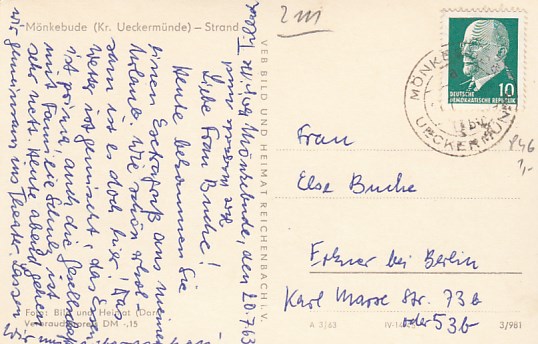 Mönkebude (Kr. Ueckermünde) – Strand
2 m
Mönkebude, den 20.7.63
Liebe Frau Buche!
Heute bekommen Sie
einen Extragruß aus meinem
Urlaub. Wie schön
sam ist es doch hier! Das
Wetter ist gemischt, das Essen
ist prima, auch die Gesellschaft
mit Familie Schulz ist
sehr nett. Heute abend gehen
wir gemeinsam ins Theater. Lassen
Foto: Bild und Heimat
Verbraucherpreis DM -,15
VEB BILD UND HEIMAT REICHENBACH i. V.
A 3/63
3/981
10
DEUTSCHE
DEMOKRATISCHE REPUBLIK
UECKERMÜNDE
Frau
Else Buche
Erkner bei Berlin
Karl Marx Str. 73a
oder 53b
846
1,-